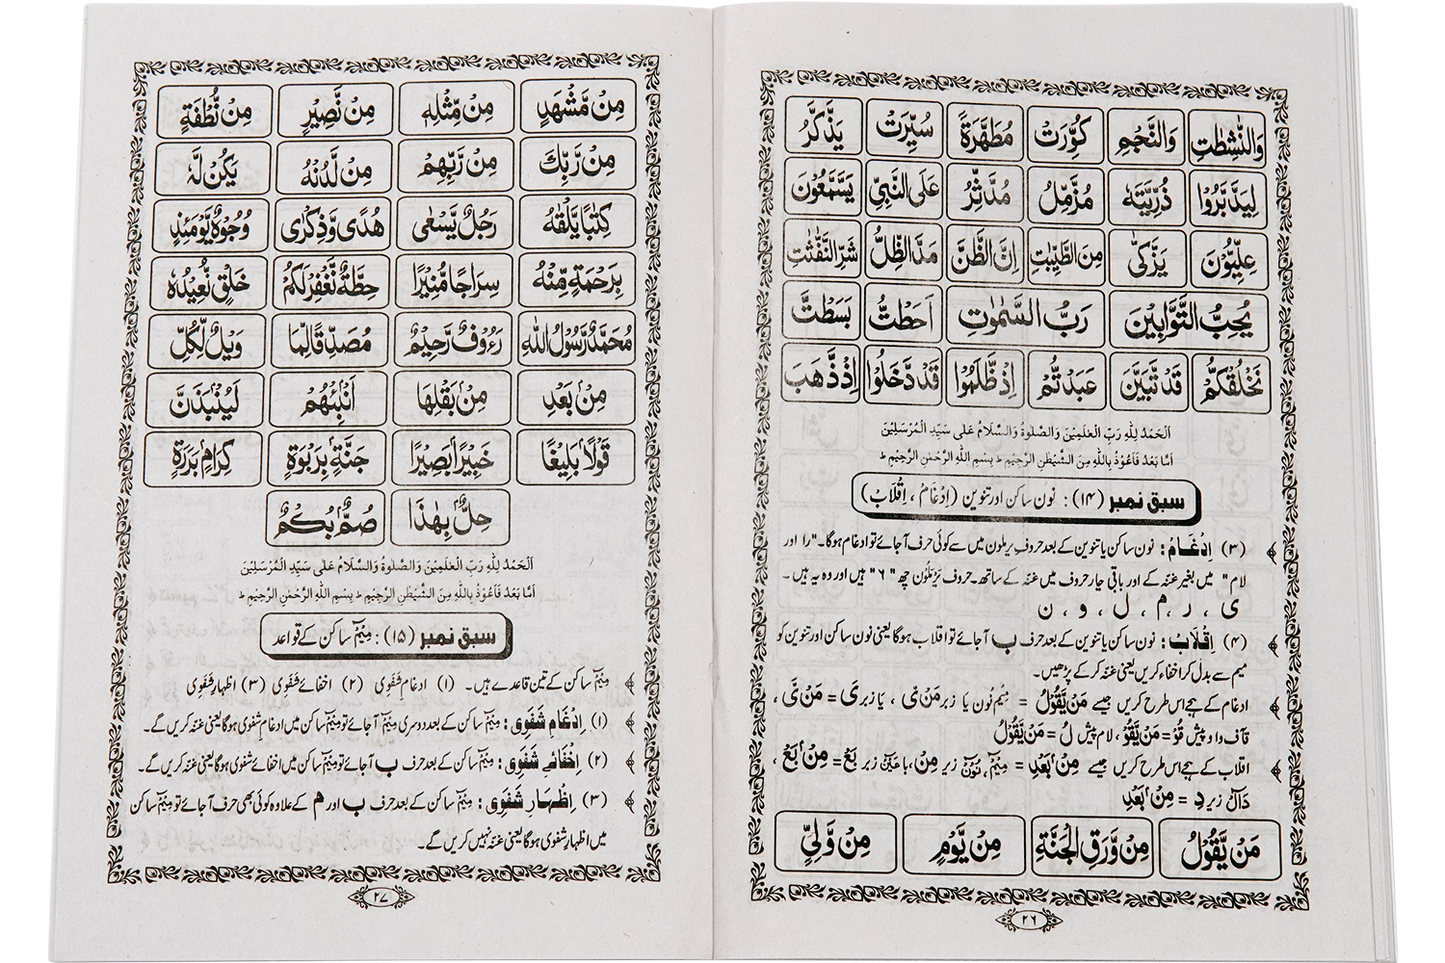 وَالنّٰشِطٰتِ وَالنَّجْمِ كُوِّرَتْ مُطَهَّرَةً سُيِّرَتْ يَذَّكَّرُ
لِيَدَّبَّرُوْا ذُرِّيَّتَهٗ مُزَّمِّلُ مُدَّثِّرُ عَلَى النَّبِيِّ يَسَّمَّعُوْنَ
عِلِّيُّوْنَ يَزَّكّٰى مِنَ الطَّيِّبٰتِ اِنَّ الظَّنَّ مَدَّ الظِّلَّ شَرِّ النَّفّٰثٰتِ
يُحِبُّ التَّوَّابِيْنَ رَبُّ السَّمٰوٰتِ اَحَطْتُّ بَسَطْتَّ
نَخْلُقْكُّمْ قَدْ تَّبَيَّنَ عَبَدْتُّمْ اِذْ ظَّلَمُوْا قَدْ دَّخَلُوْا اِذْ ذَّهَبَ
اَلْحَمْدُ لِلّٰهِ رَبِّ الْعٰلَمِيْنَ وَالصَّلٰوةُ وَالسَّلَامُ عَلٰى سَيِّدِ الْمُرْسَلِيْنَ
اَمَّا بَعْدُ فَاَعُوْذُ بِاللّٰهِ مِنَ الشَّيْطٰنِ الرَّجِيْمِ ط بِسْمِ اللّٰهِ الرَّحْمٰنِ الرَّحِيْمِ ط
سبق نمبر (۱۴) : نون ساکن اور تنوین (اِدْغَامْ ، اِقْلَابْ)
(۳) اِدْغَامْ : نون ساکن یا تنوین کے بعد حروف یرملون میں سے کوئی حرف آجائے تو ادغام ہوگا۔ "را اور
لام" میں بغیر غنہ کے اور باقی چار حروف میں غنہ کے ساتھ۔ حروف یَرْمَلُوْن چھ "۶" ہیں اور وہ یہ ہیں ۔
ی ، ر ، م ، ل ، و ، ن
(۴) اِقْلَابْ : نون ساکن یا تنوین کے بعد حرف ب آجائے تو اقلاب ہوگا یعنی نون ساکن اور تنوین کو
میم سے بدل کر اخفاء کریں یعنی غنہ کر کے پڑھیں۔
ادغام کے ہجے اس طرح کریں جیسے مَنْ یَّقُوْلُ = میم نون یا زبر مَنْ ی ، یا زبر یَ = مَنْ یَّ ،
قآف واو پیش قُوْ = مَنْ یَّقُوْ ، لام پیش لُ = مَنْ یَّقُوْلُ
اقلاب کے ہجے اس طرح کریں جیسے مِنْۢ بَعْدِ = مِیْم ، نُوْن زیر مِنْ ، با عَیْن زبر بَعْ = مِنْۢ بَعْ ،
دَال زیر دِ = مِنْۢ بَعْدِ
مَنْ يَّقُوْلُ مِنْ وَّرَقِ الْجَنَّةِ مِنْ يَّوْمٍ مِنْ وَّلِيٍّ
۲۶
مِنْ مَّشْهَدٍ مِنْ مِّثْلِهٖ مِنْ نَّصِيْرٍ مِنْ نُّطْفَةٍ
مِنْ رَّبِّكَ مِنْ رَّبِّهِمْ مِنْ لَّدُنْهُ يَكُنْ لَّهٗ
كِتٰبًا يَّلْقٰهُ رَجُلٌ يَّسْعٰى هُدًى وَّذِكْرٰى وُجُوْهٌ يَّوْمَئِذٍ
بِرَحْمَةٍ مِّنْهُ سِرَاجًا مُّنِيْرًا حِطَّةٌ نَّغْفِرْ لَكُمْ خَلْقٍ نُّعِيْدُهٗ
مُحَمَّدٌ رَّسُوْلُ اللّٰهِ رَءُوْفٌ رَّحِيْمٌ مُصَدِّقًا لِّمَا وَيْلٌ لِّكُلِّ
مِنْۢ بَعْدِ مِنْۢ بَقْلِهَا اَنْۢبِئْهُمْ لَيُنْۢبَذَنَّ
قَوْلًاۢ بَلِيْغًا خَبِيْرًاۢ بَصِيْرًا جَنَّةٍۢ بِرَبْوَةٍ كِرَامٍۢ بَرَرَةٍ
حِلٌّۢ بِهٰذَا صُمٌّۢ بُكْمٌ
اَلْحَمْدُ لِلّٰهِ رَبِّ الْعٰلَمِيْنَ وَالصَّلٰوةُ وَالسَّلَامُ عَلٰى سَيِّدِ الْمُرْسَلِيْنَ
اَمَّا بَعْدُ فَاَعُوْذُ بِاللّٰهِ مِنَ الشَّيْطٰنِ الرَّجِيْمِ ط بِسْمِ اللّٰهِ الرَّحْمٰنِ الرَّحِيْمِ ط
سبق نمبر (۱۵) : مِیْم ساکن کے قواعد
مِیْم ساکن کے تین قاعدے ہیں۔ (۱) ادغامِ شَفَوِی (۲) اخفائے شَفَوِی (۳) اظہارِ شَفَوِی
(۱) اِدْغَامِ شَفَوِی : مِیْم ساکن کے بعد دوسری مِیْم آجائے تو مِیْم ساکن میں ادغامِ شفوی ہوگا یعنی غنہ کریں گے۔
(۲) اِخْفَائے شَفَوِی : مِیْم ساکن کے بعد حرف ب آجائے تو مِیْم ساکن میں اخفائے شفوی ہوگا یعنی غنہ کریں گے۔
(۳) اِظْهَارِ شَفَوِی : مِیْم ساکن کے بعد حرف ب اور م کے علاوہ کوئی بھی حرف آجائے تو مِیْم ساکن
میں اظہارِ شفوی ہوگا یعنی غنہ نہیں کریں گے۔
۲۷